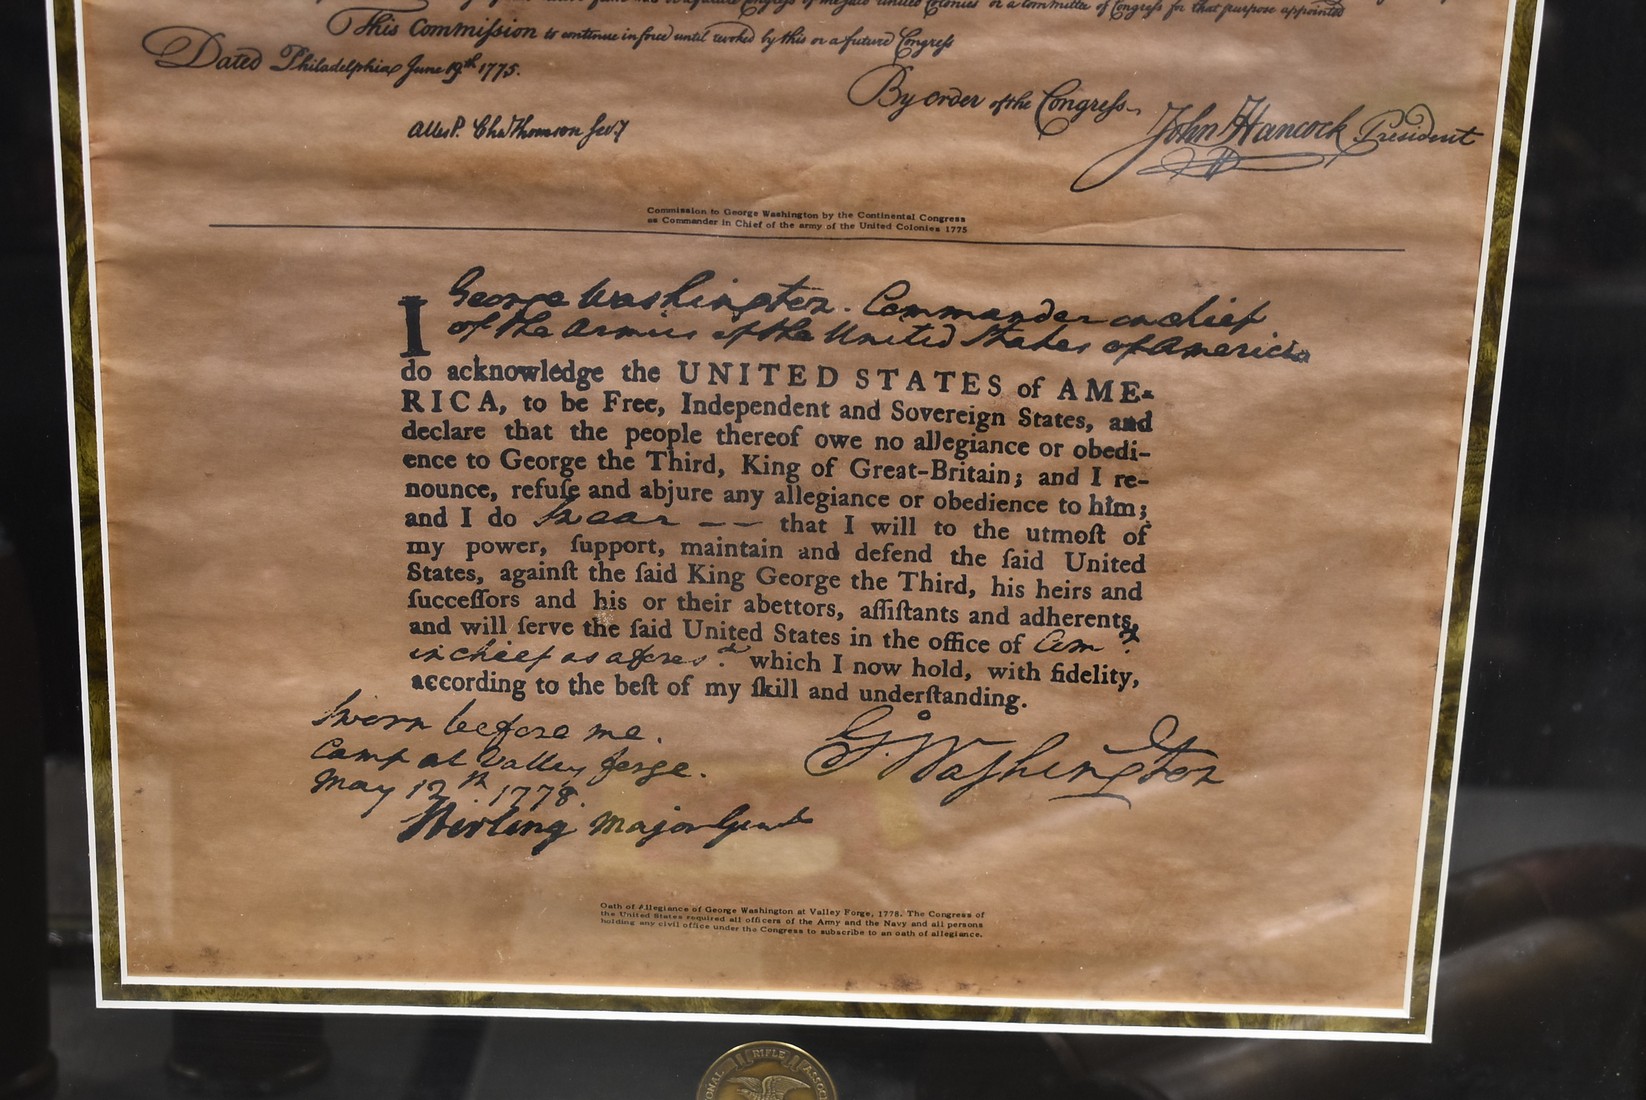 Congress of the said United Colonies or a committee of Congress for that purpose appointed
This Commiſsion to continue in force until revoked by this or a future Congreſs
Dated Philadelphia June 19th 1775.
By order of the Congreſs
Attest. Cha Thomson Secy
John Hancock President
Commission to George Washington by the Continental Congress
as Commander in Chief of the army of the United Colonies 1775
I George Washington. Commander in chief
of the Armies of the United States of America
do acknowledge the UNITED STATES of AME-
RICA, to be Free, Independent and Sovereign States, and
declare that the people thereof owe no allegiance or obedi-
ence to George the Third, King of Great-Britain; and I re-
nounce, refuſe and abjure any allegiance or obedience to him;
and I do Swear — — that I will to the utmoſt of
my power, ſupport, maintain and defend the ſaid United
States, againſt the ſaid King George the Third, his heirs and
ſucceſſors and his or their abettors, aſſiſtants and adherents,
and will ſerve the ſaid United States in the office of Com.r
in chief as afores.d which I now hold, with fidelity,
according to the beſt of my ſkill and underſtanding.
Sworn before me.
Camp at Valley forge.
May 12th 1778.
G. Washington
Stirling Major Genl
Oath of Allegiance of George Washington at Valley Forge, 1778. The Congress of
the United States required all officers of the Army and the Navy and all persons
holding any civil office under the Congress to subscribe to an oath of allegiance.
RIFLE